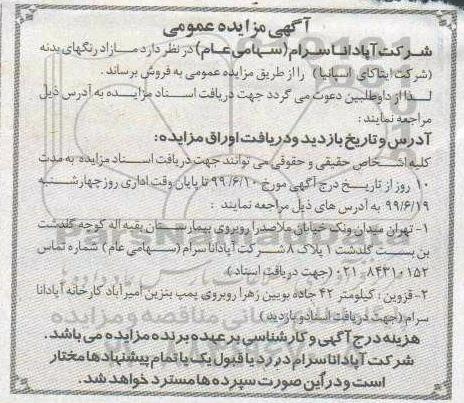 آگهی مزایده عمومی
شرکت آپادانا سرام (سهامی عام) در نظر دارد مازاد رنگهای بدنه
(شرکت ایتاکای اسپانیا) را از طریق مزایده عمومی به فروش برساند.
لذا از داوطلبین دعوت می گردد جهت دریافت اسناد مزایده به آدرس ذیل
مراجعه نمایند:
آدرس و تاریخ بازدید و دریافت اوراق مزایده:
کلیه اشخاص حقیقی و حقوقی می توانند جهت دریافت اسناد مزایده به مدت
۱۰ روز از تاریخ درج آگهی مورخ ۹۹/۶/۱۰ تا پایان وقت اداری روز چهارشنبه
۹۹/۶/۱۹ به آدرس های ذیل مراجعه نمایند:
۱- تهران میدان ونک خیابان ملاصدرا روبروی بیمارستان بقیه اله کوچه گلدشت
بن بست گلدشت ۱ پلاک ۸ شرکت آپادانا سرام (سهامی عام) شماره تماس
۰۲۱-۸۴۳۱۰۱۵۲ (جهت دریافت اسناد)
۲- قزوین: کیلومتر ۴۲ جاده بویین زهرا روبروی پمپ بنزین امیرآباد کارخانه آپادانا
سرام (جهت دریافت اسناد و بازدید)
هزینه درج آگهی و کارشناسی بر عهده برنده مزایده می باشد.
شرکت آپادانا سرام در رد یا قبول یک یا تمام پیشنهادها مختار
است و در این صورت سپرده ها مسترد خواهد شد.